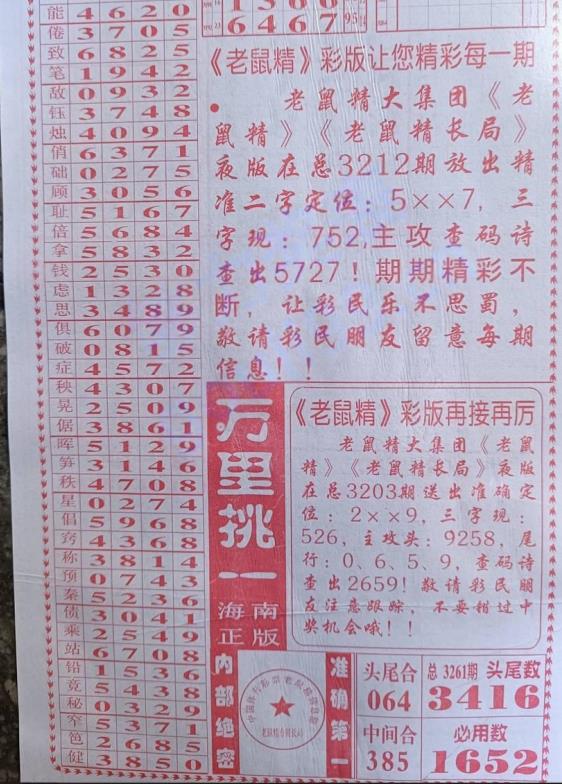 能 4 6 2 0
倦 3 7 0 5
致 6 8 2 5
笔 1 9 4 2
敌 0 9 3 2
钰 3 7 4 8
烛 4 0 9 4
俏 6 3 7 1
础 0 2 7 5
顾 3 0 5 6
耻 5 1 6 7
倍 5 6 8 4
拿 5 8 3 2
钱 2 5 3 0
虑 1 3 2 8
思 3 4 8 9
俱 6 0 7 9
破 0 8 1 5
症 4 5 7 2
秧 4 3 0 7
晃 2 5 0 9
倨 3 8 6 1
晖 5 1 2 9
笋 3 1 4 6
秩 4 7 0 8
星 0 2 7 4
倡 5 9 6 8
窍 4 3 6 8
称 3 8 1 4
预 0 7 4 3
秦 5 2 3 6
债 3 0 4 1
乘 2 5 4 9
站 6 7 0 8
铅 1 5 3 6
竞 5 4 3 8
秘 0 3 2 9
窄 5 3 7 1
笆 2 6 8 5
健 3 8 5 0
6 4 6 7
95
《老鼠精》彩版让您精彩每一期
老鼠精大集团《老
鼠精》《老鼠精长局》
夜版在总3212期放出精
准二字定位：5××7，三
字现：752,主攻查码诗
查出5727！期期精彩不
断，让彩民乐不思蜀，
敬请彩民朋友留意每期
信息！！
万里挑一
海南
正版
《老鼠精》彩版再接再厉
老鼠精大集团《老鼠
精》《老鼠精长局》夜版
在总3203期送出准确定
位：2××9，三字现：
526，主攻头：9258，尾
行：0、6、5、9，查码诗
查出2659！敬请彩民朋
友注意跟踪，不要错过中
奖机会哦！！
内部绝密
准确第一
头尾合
064
中间合
385
总3261期 头尾数
3416
必用数
1652